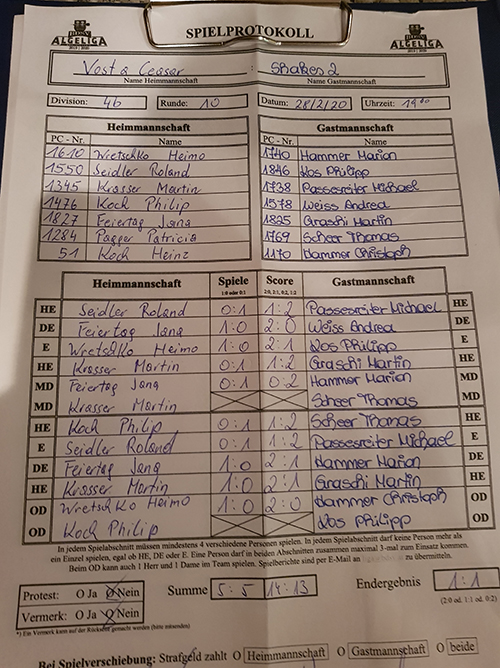 ALGELIGA SPIELPROTOKOLL ALGELIGA
2019 | 2020 2019 | 2020
Vost a Ceasar : Shakes 2
Name Heimmannschaft Name Gastmannschaft
Division: 4b Runde: 10 Datum: 28/2/20 Uhrzeit: 19⁰⁰
Heimmannschaft Gastmannschaft
PC - Nr. Name PC - Nr. Name
1610 Wretschko Heimo 1740 Hammer Marion
1550 Seidler Roland 1846 Kos Philipp
1345 Krasser Martin 1738 Passesreiter Michael
1476 Koch Philip 1578 Weiss Andrea
1827 Feiertag Jana 1895 Graschi Martin
1284 Pagger Patricia 1769 Scheer Thomas
51 Koch Heinz 1170 Hammer Christoph
Heimmannschaft Spiele Score Gastmannschaft
1:0 oder 0:1 2:0, 2:1, 0:2, 1:2
HE Seidler Roland 0:1 1:2 Passesreiter Michael HE
DE Feiertag Jana 1:0 2:0 Weiss Andrea DE
E Wretschko Heimo 1:0 2:1 Kos Philipp E
HE Krasser Martin 0:1 1:2 Graschi Martin HE
MD Feiertag Jana 0:1 0:2 Hammer Marion MD
MD Krasser Martin Scheer Thomas MD
HE Koch Philip 0:1 1:2 Scheer Thomas HE
E Seidler Roland 0:1 1:2 Passesreiter Michael E
DE Feiertag Jana 1:0 2:1 Hammer Marion DE
HE Krasser Martin 1:0 2:1 Graschi Martin HE
OD Wretschko Heimo 1:0 2:0 Hammer Christoph OD
OD Koch Philip Kos Philipp OD
In jedem Spielabschnitt müssen mindestens 4 verschiedene Personen spielen. In jedem Spielabschnitt darf keine Person mehr als
ein Einzel spielen, egal ob HE, DE oder E. Eine Person darf in beiden Abschnitten zusammen maximal 3-mal zum Einsatz kommen.
Beim OD kann auch 1 Herr und 1 Dame im Team spielen. Spielberichte sind per E-Mail an zu übermitteln.
Protest: O Ja O Nein Summe 5:5 14:13 Endergebnis 1:1
Vermerk: O Ja O Nein (2:0 od. 1:1 od. 0:2)
*) Ein Vermerk kann auf der Rückseite gemacht werden (bitte ankreuzen)
Bei Spielverschiebung: Strafgeld zahlt O Heimmannschaft O Gastmannschaft O beide